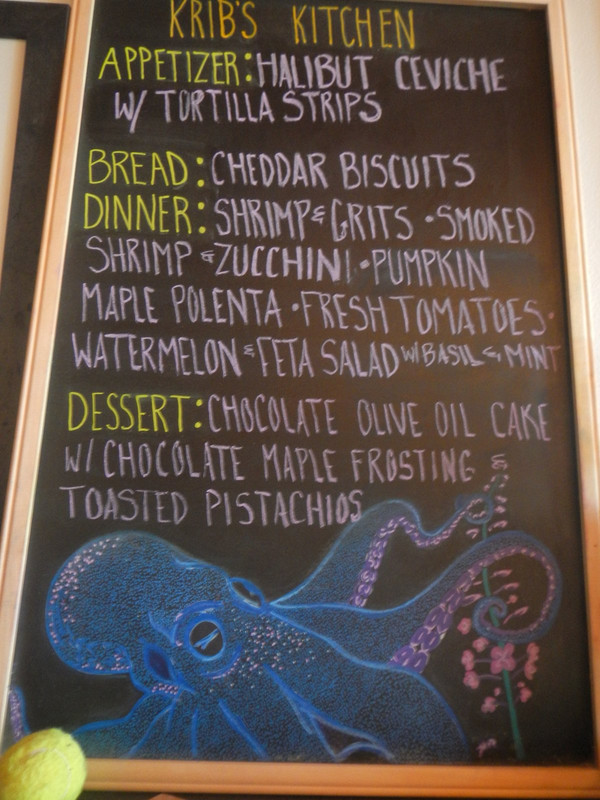 KRIB'S KITCHEN
APPETIZER: HALIBUT CEVICHE
W/ TORTILLA STRIPS
BREAD: CHEDDAR BISCUITS
DINNER: SHRIMP & GRITS • SMOKED
SHRIMP & ZUCCHINI • PUMPKIN
MAPLE POLENTA • FRESH TOMATOES •
WATERMELON & FETA SALAD W/ BASIL & MINT
DESSERT: CHOCOLATE OLIVE OIL CAKE
W/ CHOCOLATE MAPLE FROSTING &
TOASTED PISTACHIOS